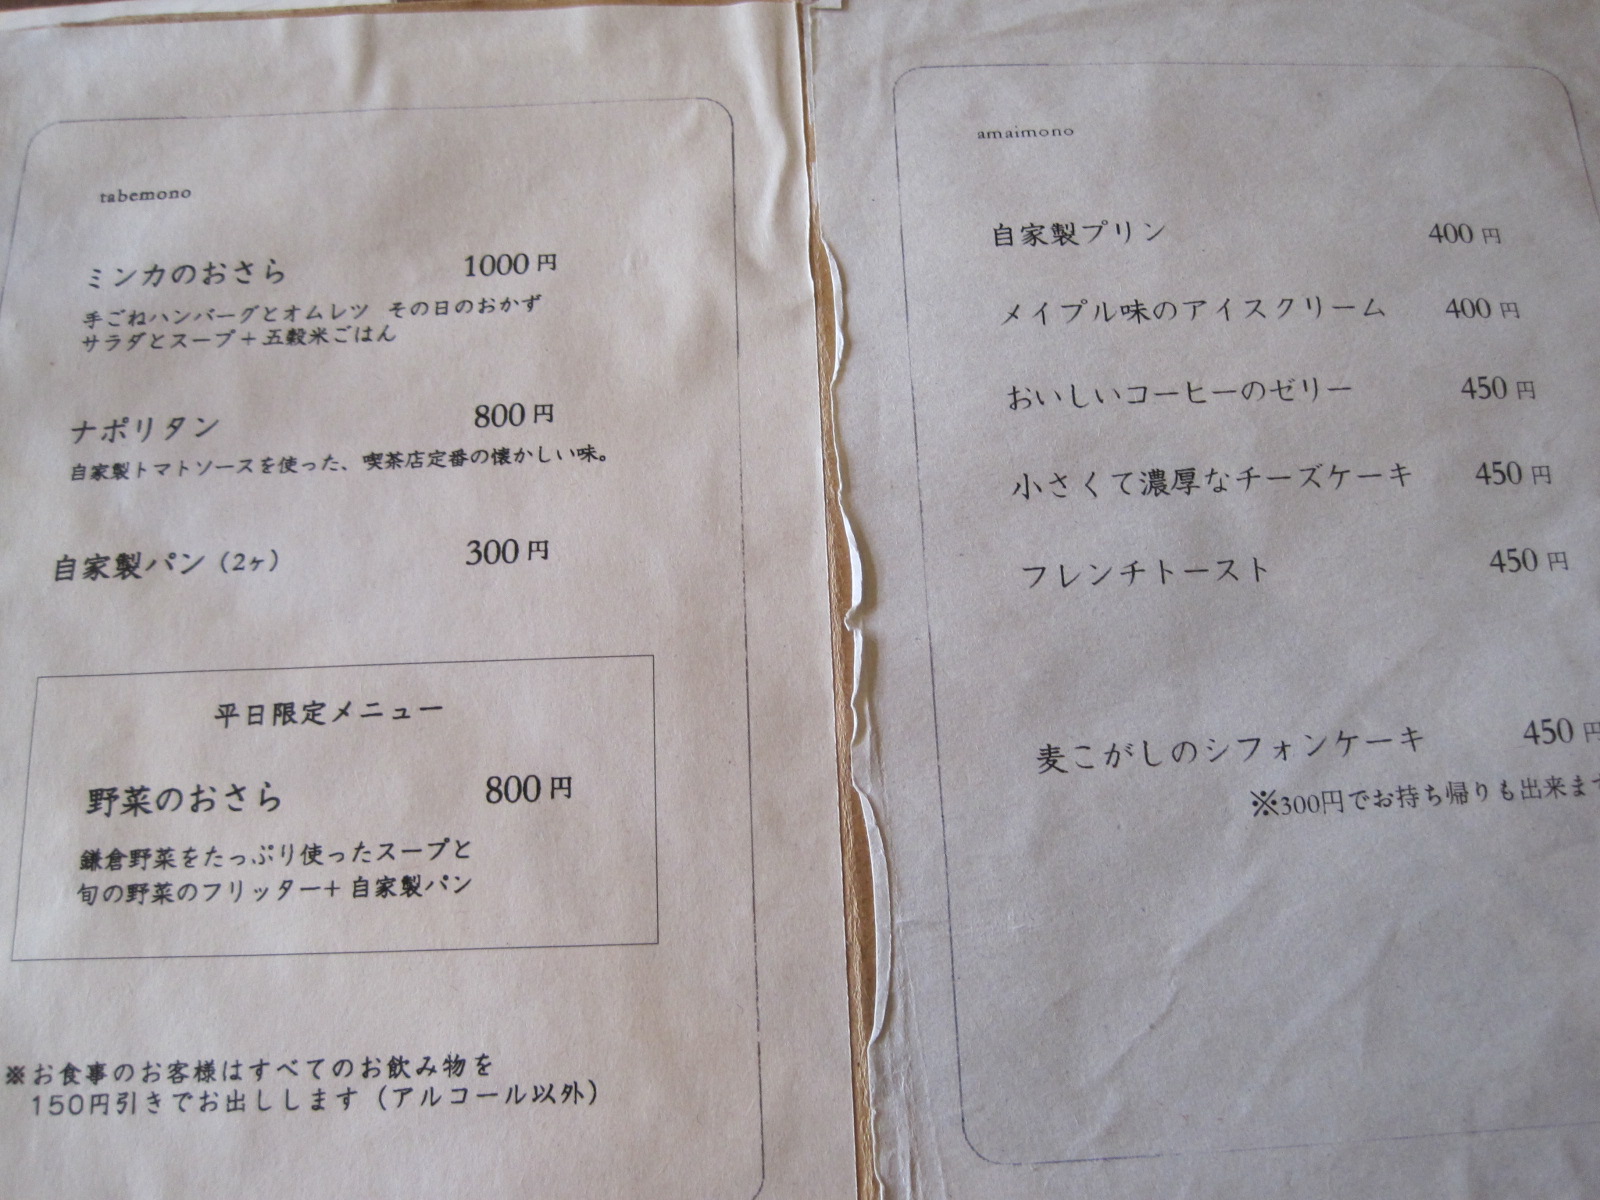 tabemono
ミンカのおさら 1000円
手ごねハンバーグとオムレツ その日のおかず
サラダとスープ+五穀米ごはん
ナポリタン 800円
自家製トマトソースを使った、喫茶店定番の懐かしい味。
自家製パン(2ヶ) 300円
平日限定メニュー
野菜のおさら 800円
鎌倉野菜をたっぷり使ったスープと
旬の野菜のフリッター+自家製パン
※お食事のお客様はすべてのお飲み物を
150円引きでお出しします(アルコール以外)
amaimono
自家製プリン 400円
メイプル味のアイスクリーム 400円
おいしいコーヒーのゼリー 450円
小さくて濃厚なチーズケーキ 450円
フレンチトースト 450円
麦こがしのシフォンケーキ 450円
※300円でお持ち帰りも出来ます